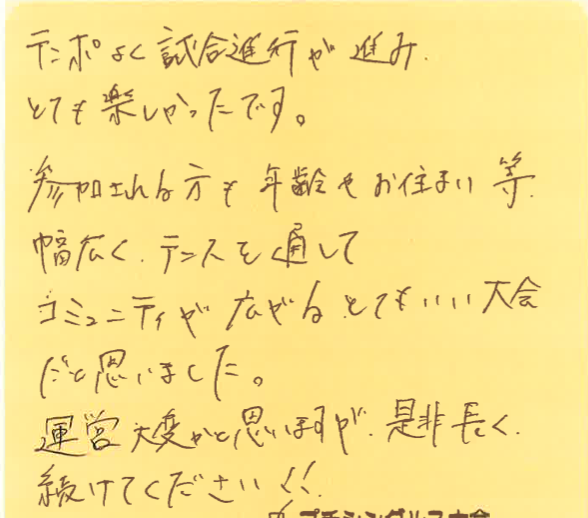 テンポよく試合進行が進み、
とても楽しかったです。
参加される方も年齢やお住まい等、
幅広く、テニスを通して
コミュニティが広がるとてもいい大会
だと思いました。
運営大変かと思いますが、是非長く、
続けてください!!
プチシングルス大会